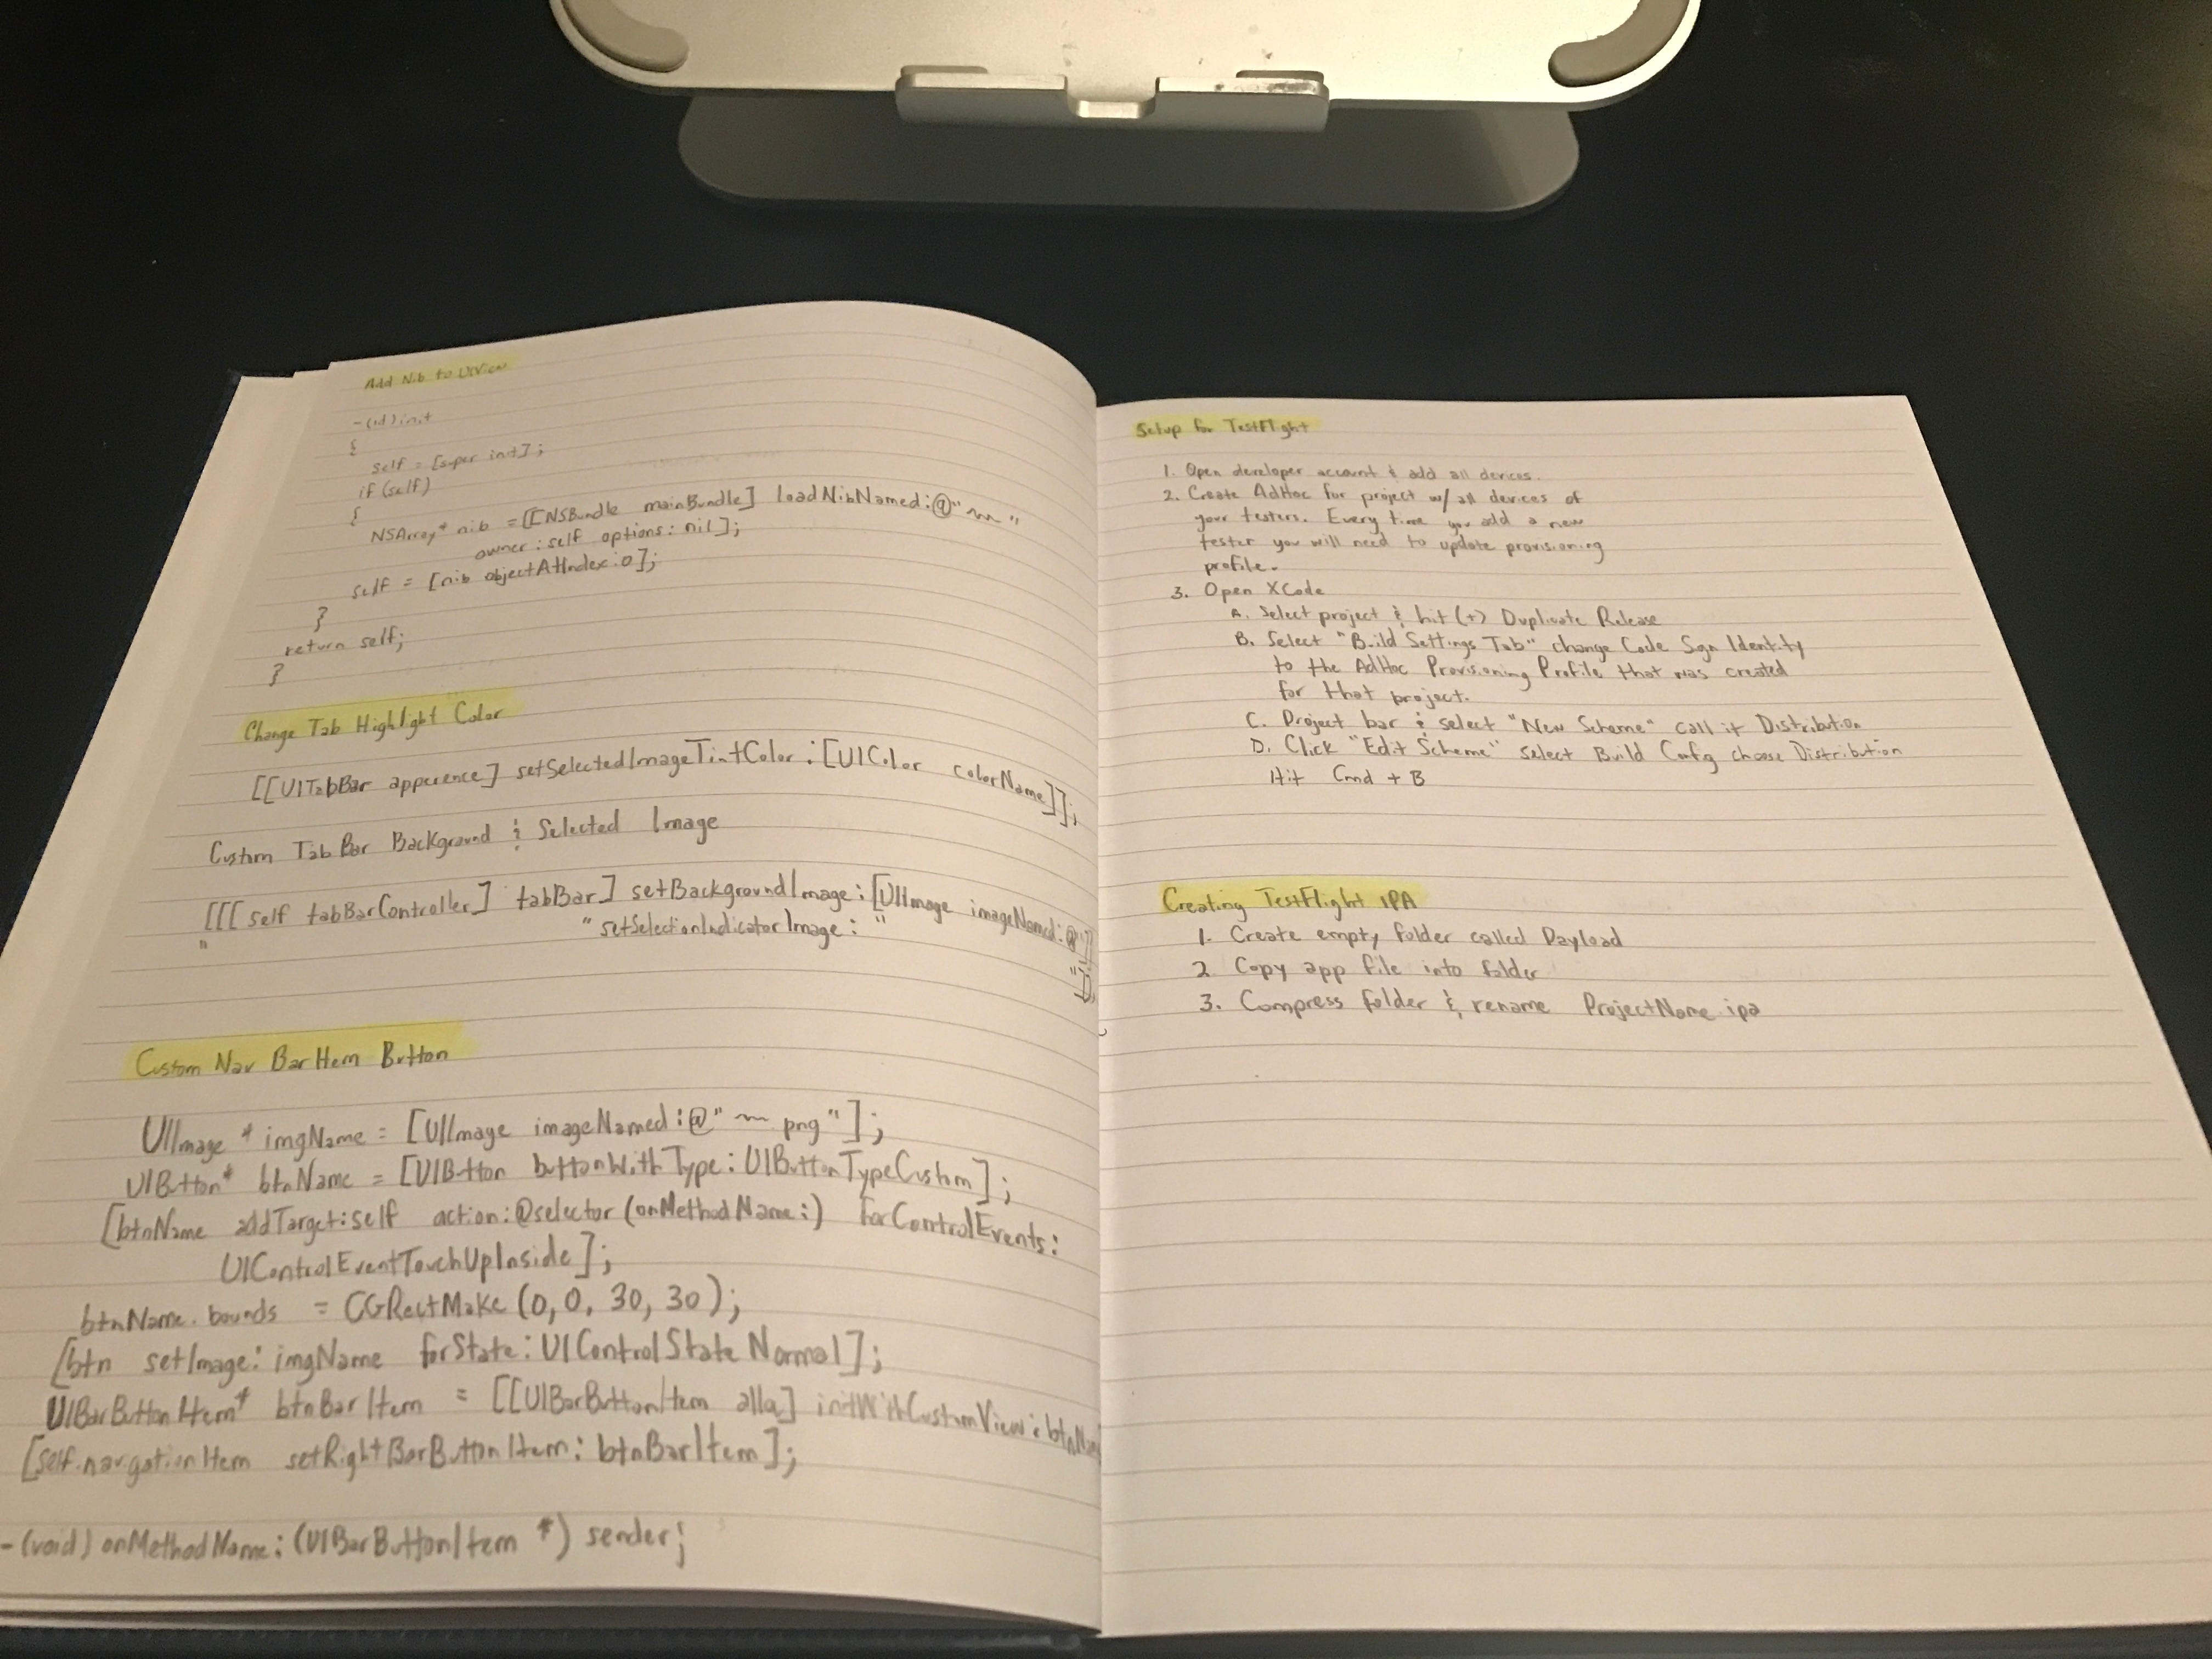 Add Nib to UIView
-(id)init
{
self = [super init];
if (self)
{
NSArray* nib = [[NSBundle mainBundle] loadNibNamed:@"~~"
owner:self options:nil];
self = [nib objectAtIndex:0];
}
return self;
}
Change Tab Highlight Color
[[UITabBar apperence] setSelectedImageTintColor:[UIColor colorName]];
Custom Tab Bar Background & Selected Image
[[[self tabBarController] tabBar] setBackgroundImage:[UIImage imageNamed:@"]]
" " setSelectionIndicatorImage: "
Custom Nav BarItem Button
UIImage * imgName = [UIImage imageNamed:@"~~ png"];
UIButton* btnName = [UIButton buttonWithType:UIButtonTypeCustom];
[btnName addTarget:self action:@selector(onMethodName:) forControlEvents:
UIControlEventTouchUpInside];
btnName.bounds = CGRectMake(0,0,30,30);
[btn setImage:imgName forState:UIControlStateNormal];
UIBarButtonItem* btnBarItem = [[UIBarButtonItem alloc] initWithCustomView:btnName
[self.navigationItem setRightBarButtonItem:btnBarItem];
-(void)onMethodName:(UIBarButtonItem *)sender;
Setup for TestFlight
1. Open developer account & add all devices.
2. Create AdHoc for project w/ all devices of
your testers. Every time you add a new
tester you will need to update provisioning
profile.
3. Open XCode
A. Select project & hit (+) Duplicate Release
B. Select "Build Settings Tab" change Code Sign Identity
to the AdHoc Provisioning Profile that was created
for that project.
C. Project bar & select "New Scheme" call it Distribution
D. Click "Edit Scheme" select Build Config choose Distribution
Hit Cmd + B
Creating TestFlight IPA
1. Create empty folder called Payload
2 Copy app file into folder
3. Compress folder & rename ProjectName.ipa